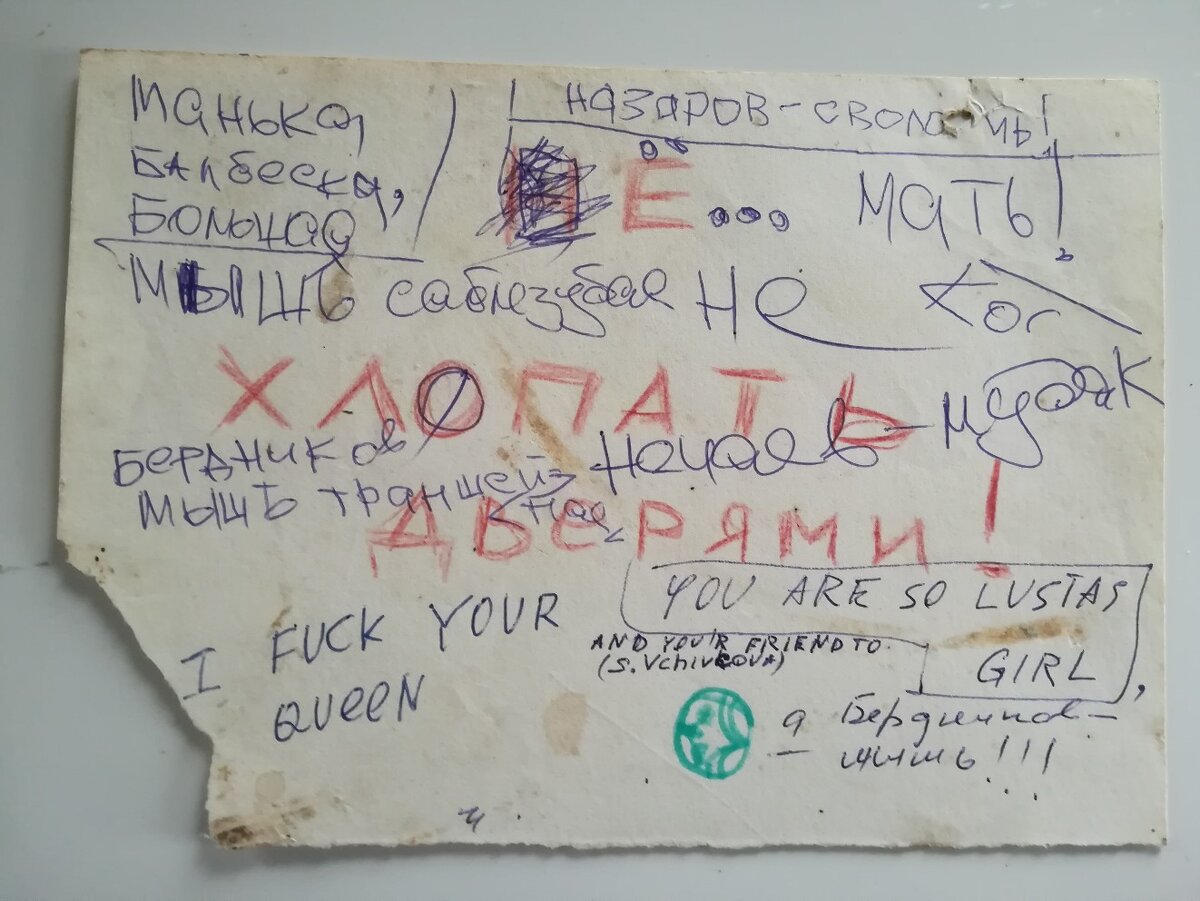 Манька,
Балбеска,
Больная
НАЗАРОВ - СВОЛОЧЬ!
Ё... МАТЬ!
МЫШЬ саблезубая
Не
ХЛОПАТЬ
Бердников
Нечаев - мудак
МЫШЬ траншей-
ная
ДВЕРЯМИ!
YOU ARE SO LUSTAS
GIRL,
AND YOU'R FRIEND TO.
(S. Vchivkova)
I FUCK YOUR
QUEEN
а Бердников -
мышь!!!